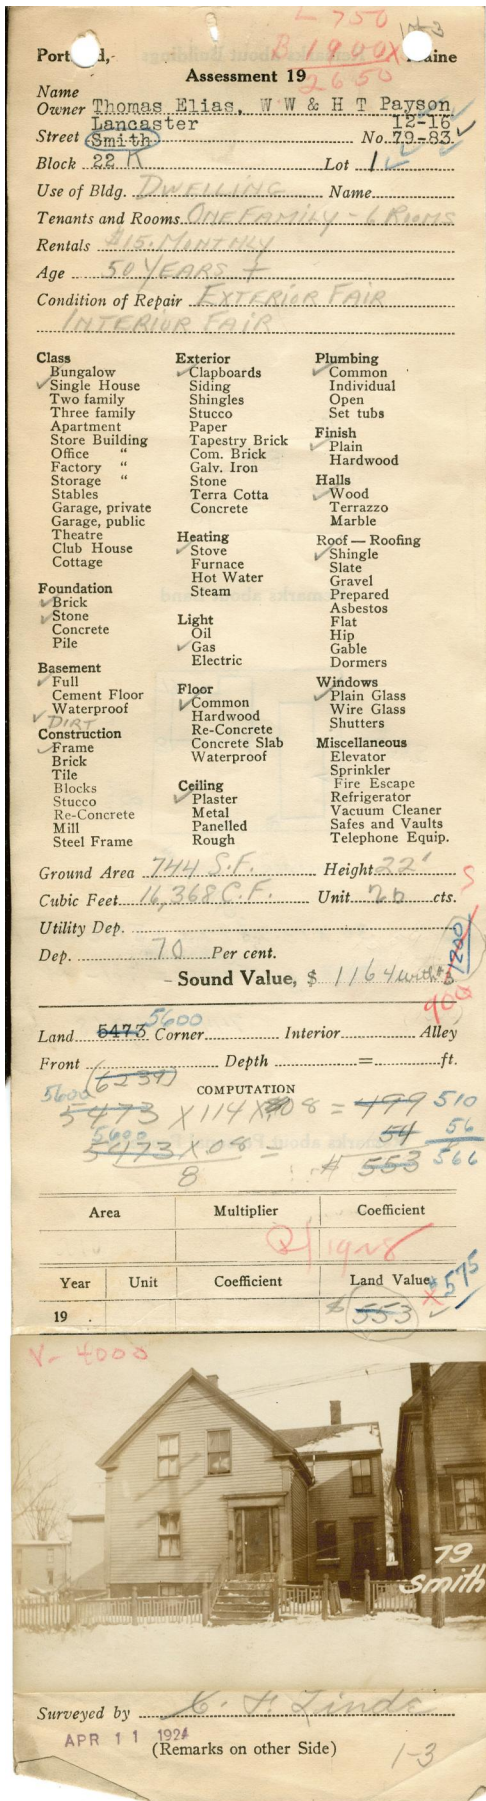 L 750
1 of 3
B 1900 X
Portland, Maine
2650
Assessment 19
Name
Owner Thomas Elias, W W & H T Payson
Lancaster 12-16
Street Smith No. 79-83
Block 22 K Lot 1
Use of Bldg. DWELLING Name
Tenants and Rooms ONE FAMILY - 6 ROOMS
Rentals $15. MONTHLY
Age 50 YEARS +
Condition of Repair EXTERIOR FAIR
INTERIOR FAIR
Class
Bungalow
✓ Single House
Two family
Three family
Apartment
Store Building
Office "
Factory "
Storage "
Stables
Garage, private
Garage, public
Theatre
Club House
Cottage
Foundation
✓ Brick
✓ Stone
Concrete
Pile
Basement
✓ Full
Cement Floor
Waterproof
✓ DIRT
Construction
✓ Frame
Brick
Tile
Blocks
Stucco
Re-Concrete
Mill
Steel Frame
Exterior
✓ Clapboards
Siding
Shingles
Stucco
Paper
Tapestry Brick
Com. Brick
Galv. Iron
Stone
Terra Cotta
Concrete
Heating
✓ Stove
Furnace
Hot Water
Steam
Light
Oil
✓ Gas
Electric
Floor
✓ Common
Hardwood
Re-Concrete
Concrete Slab
Waterproof
Ceiling
✓ Plaster
Metal
Panelled
Rough
Plumbing
✓ Common
Individual
Open
Set tubs
Finish
✓ Plain
Hardwood
Halls
✓ Wood
Terrazzo
Marble
Roof — Roofing
✓ Shingle
Slate
Gravel
Prepared
Asbestos
Flat
Hip
Gable
Dormers
Windows
✓ Plain Glass
Wire Glass
Shutters
Miscellaneous
Elevator
Sprinkler
Fire Escape
Refrigerator
Vacuum Cleaner
Safes and Vaults
Telephone Equip.
Ground Area 744 S.F. Height 22'
Cubic Feet 16,368 C.F. Unit cts.
Utility Dep.
Dep. 70 Per cent.
1200
Sound Value, $ 1164
900
5600
Land 5473 Corner Interior Alley
Front Depth = ft.
(6234)
COMPUTATION
5600
5473 X 114 X .08 = 499 510
5600 54 56
5473 X 08 = $ 553 566
8
Area Multiplier Coefficient
Year Unit Coefficient Land Value
575
19 $ 553
V- 4000
79
Smith
Surveyed by C. H. Linde
APR 11 1924
(Remarks on other Side)
1-3